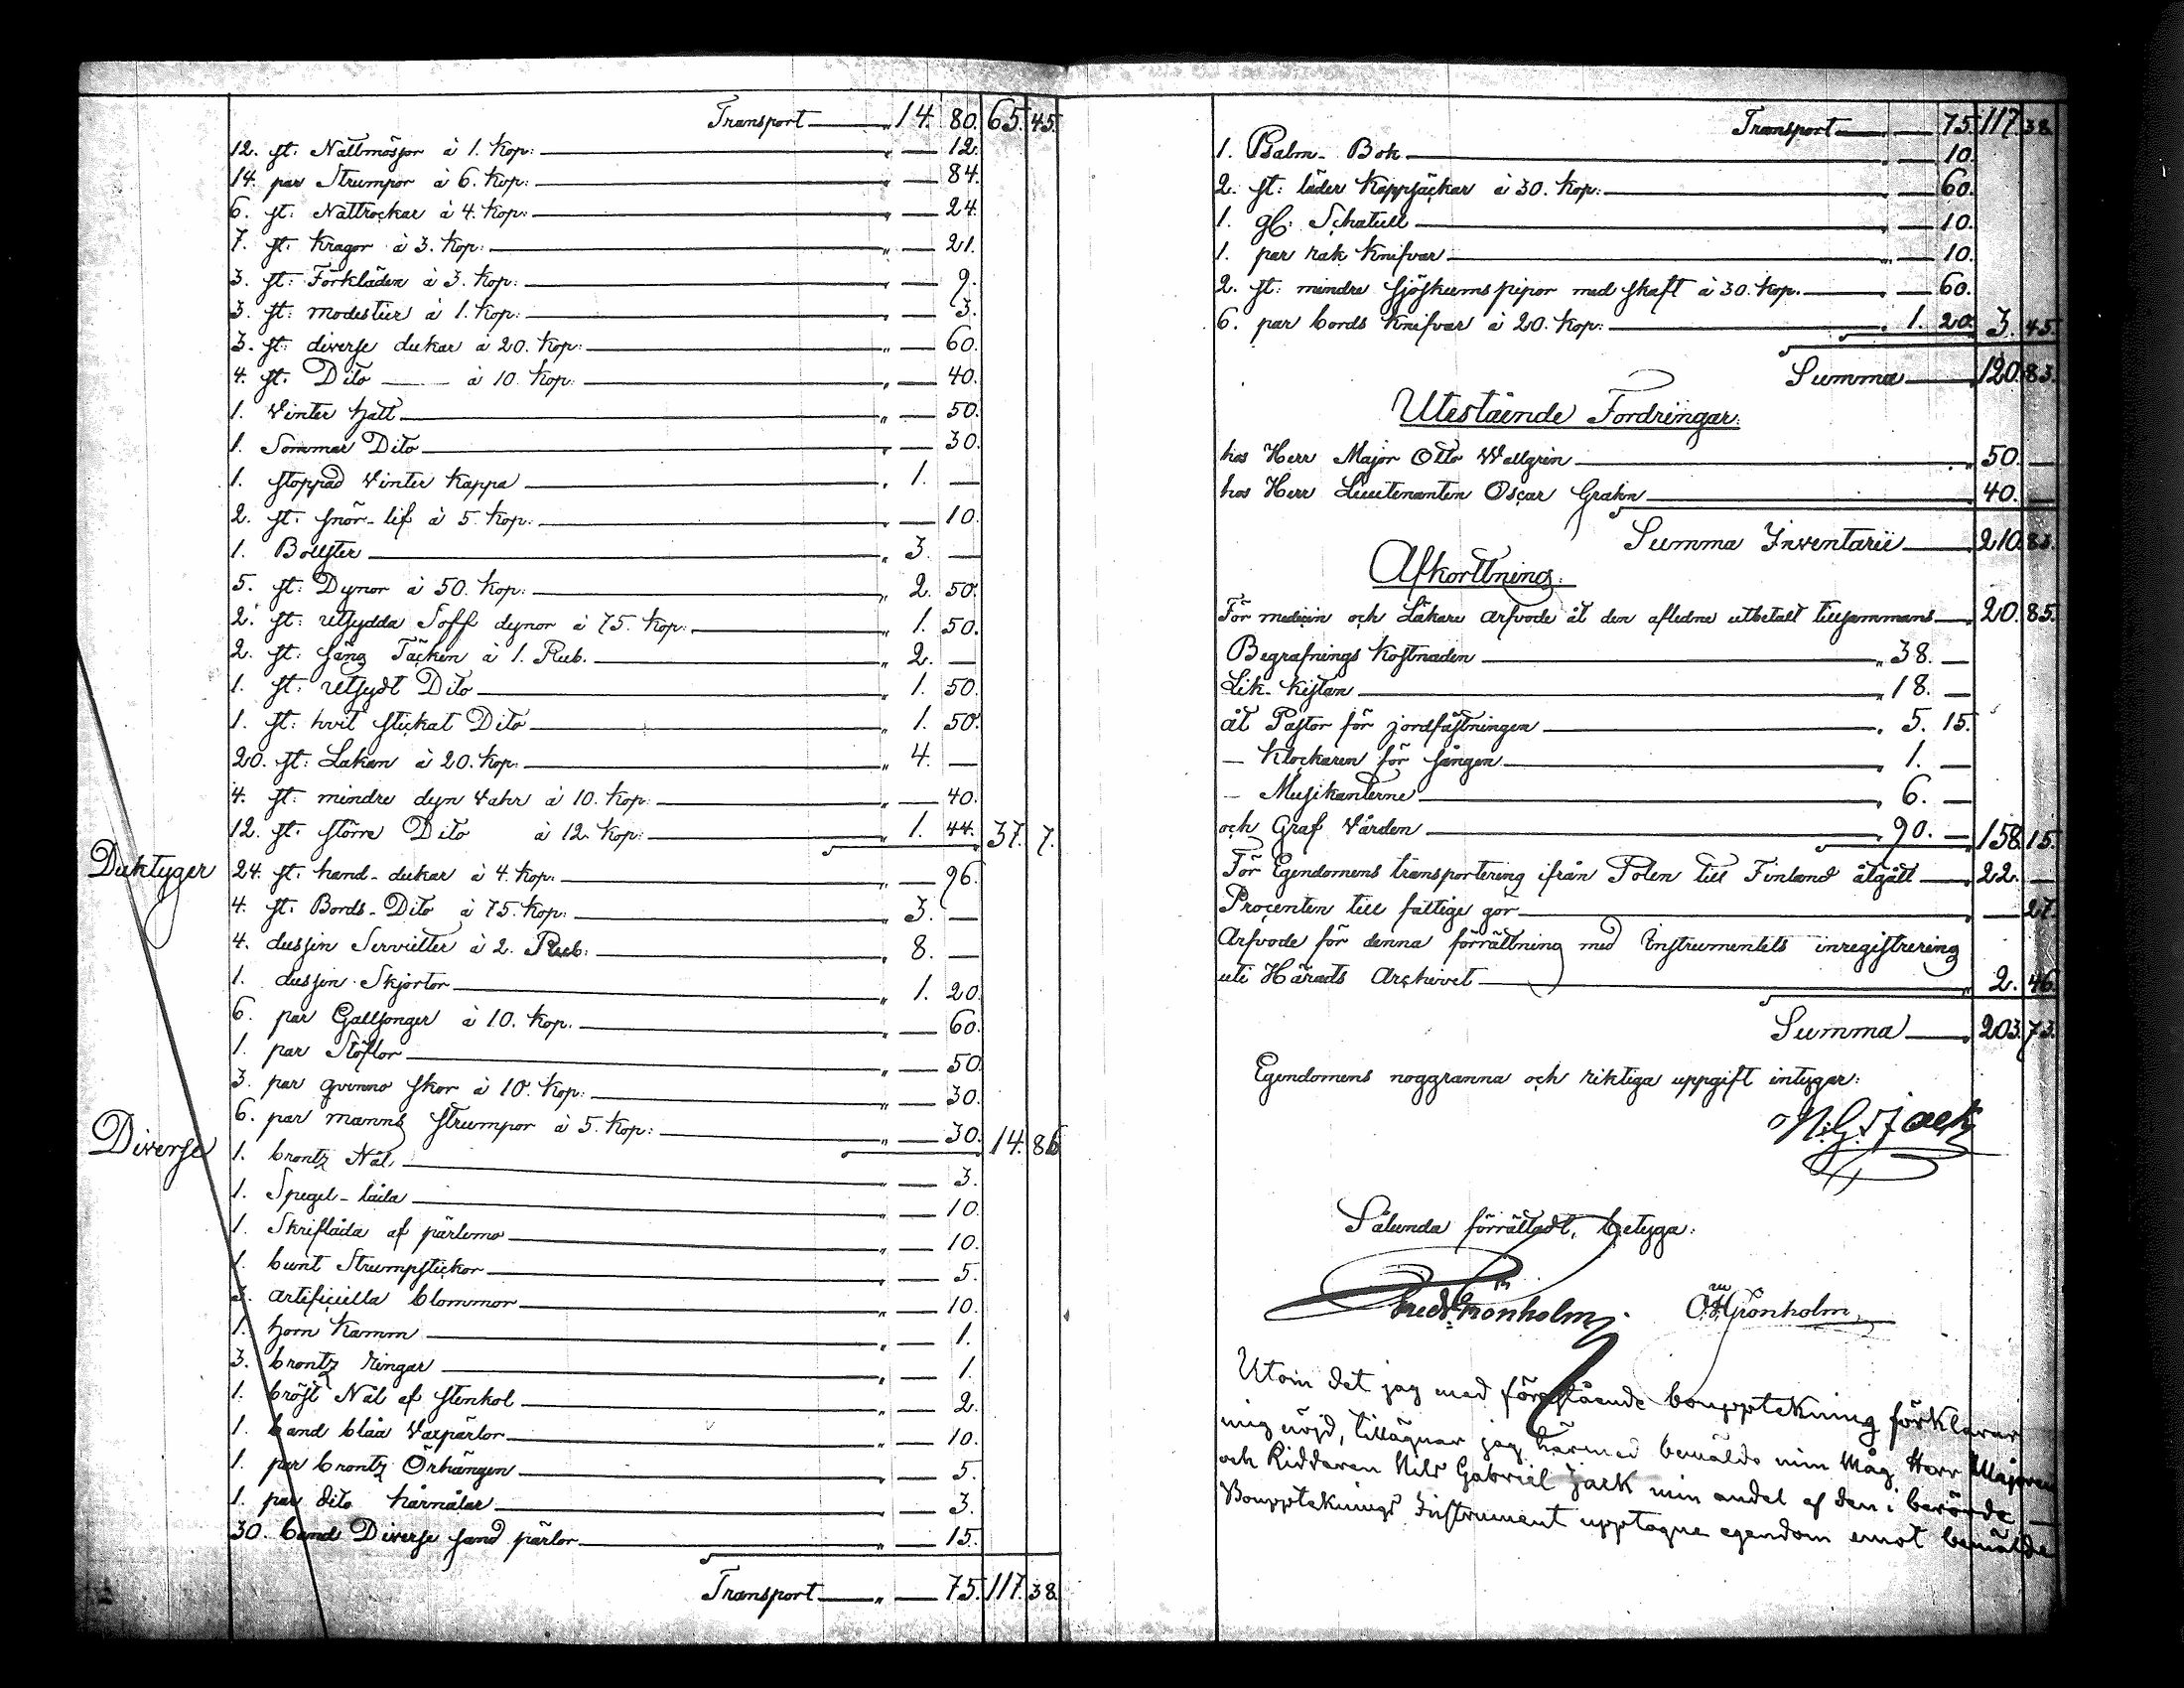 Transport — " 14. 80. 65. 45.
12. st: Nattmössor à 1. Kop: — " — 12.
14. par Strumpor à 6. Kop: — " — 84.
6. st: Nattrockar à 4. Kop: — " — 24.
7. st: Kragor à 3. Kop: — " — 21.
3. st: Förkläden à 3. Kop: — " — 9.
3. st: modestier à 1. Kop: — " — 3.
3. st: diverse dukar à 20. Kop: — " — 60.
4. st: Dito — à 10. Kop: — " — 40.
1. Vinter hatt — " — 50.
1. Sommar Dito — " — 30.
1. stoppad Vinter Kappa — " 1. —
2. st: snör-lif à 5. Kop: — " — 10.
1. Bollster — " 3. —
5. st: Dynor à 50. Kop: — " 2. 50.
2. st: utsydda Soff dynor à 75. Kop: — " 1. 50.
2. st: säng Täcken à 1. Rub. — " 2. —
1. st: utsydt Dito — " 1. 50.
1. st: hvit stickat Dito — " 1. 50.
20. st: Lakan à 20. Kop: — " 4. —
4. st: mindre dyn Vahr à 10. Kop: — " — 40.
12. st: större Dito à 12. Kop: — " 1. 44. 37. 7.
Duktyger 24. st: hand-dukar à 4. Kop: — " — 96.
4. st: Bords-Dito à 75. Kop: — " 3. —
4. dussin Servietter à 2. Rub: — " 8. —
1. dussin Skjortor — " 1. 20.
6. par Gallsonger à 10. Kop. — " — 60.
1. par Stöflor — " — 50.
3. par qvinno skor à 10. Kop: — " — 30.
6. par manns strumpor à 5. Kop: — " — 30. 14. 86
Diverse 1. brontz Nål — " — 3.
1. Spegel-låda — " — 10.
1. Skriflåda af pärlemo — " — 10.
1. bunt Strumpstickor — " — 5.
3. artificiella blommor — " — 10.
1. horn Kamm — " — 1.
3. brontz ringar — " — 1.
1. bröst Nål af stenkol — " — 2.
1. band blåa Vaxpärlor — " — 10.
1. par brontz Örhängen — " — 5.
1. par dito hårnålar — " — 3.
30. band Diverse sand pärlor — " — 15.
Transport — " — 75. 117. 38.
Transport — " — 75. 117. 38.
1. Psalm-Bok — " — 10.
2. st: läder Kappsäckar à 30. Kop: — " — 60.
1. gl: Schatull — " — 10.
1. par rak Knifvar — " — 10.
2. st: mindre sjöskums pipor med skaft à 30. Kop. — " — 60.
6. par bords Knifvar à 20. Kop: — " 1. 20. 3. 45.
Summa — 120. 83.
Utestående Fordringar:
hos Herr Major Otto Wallgrèn — " 50. —
hos Herr Lieutenanten Oscar Grahn — 40. —
Summa Inventarii — 210. 83.
Afkorttning:
För medicin och Läkare arfvode åt den aflidne utbetalt tillsammans — 20. 85.
Begrafnings Kostnaden — " 38. —
Lik-Kistan — " 18. —
åt Pastor för jordfästningen — " 5. 15.
— Klockaren för sången — " 1. —
— Musikanterne — " 6. —
och Graf Vården — " 90. — 158. 15.
För Egendomens transportering ifrån Polen till Finland åtgått — 22. —
Procenten till fattige gör — " — 27.
Arfvode för denna förrättning med Instrumentets inregistrering
uti Härads Archivet — " 2. 46.
Summa — 203. 73.
Egendomens noggranna och riktiga uppgift intygar:
N. G. Jack
Sålunda förrättadt, betyga:
Fredr. Grönholm. O. W. Grönholm
Utom det jag med förestående bouppteckning förklarar
mig nöjd, tillägnar jag härmed bemälde min Måg Herr Majoren
och Riddaren Nils Gabriel Jack min andel af den i berörde —
Bouppteknings Instrument upptagne egendom emot bemälde